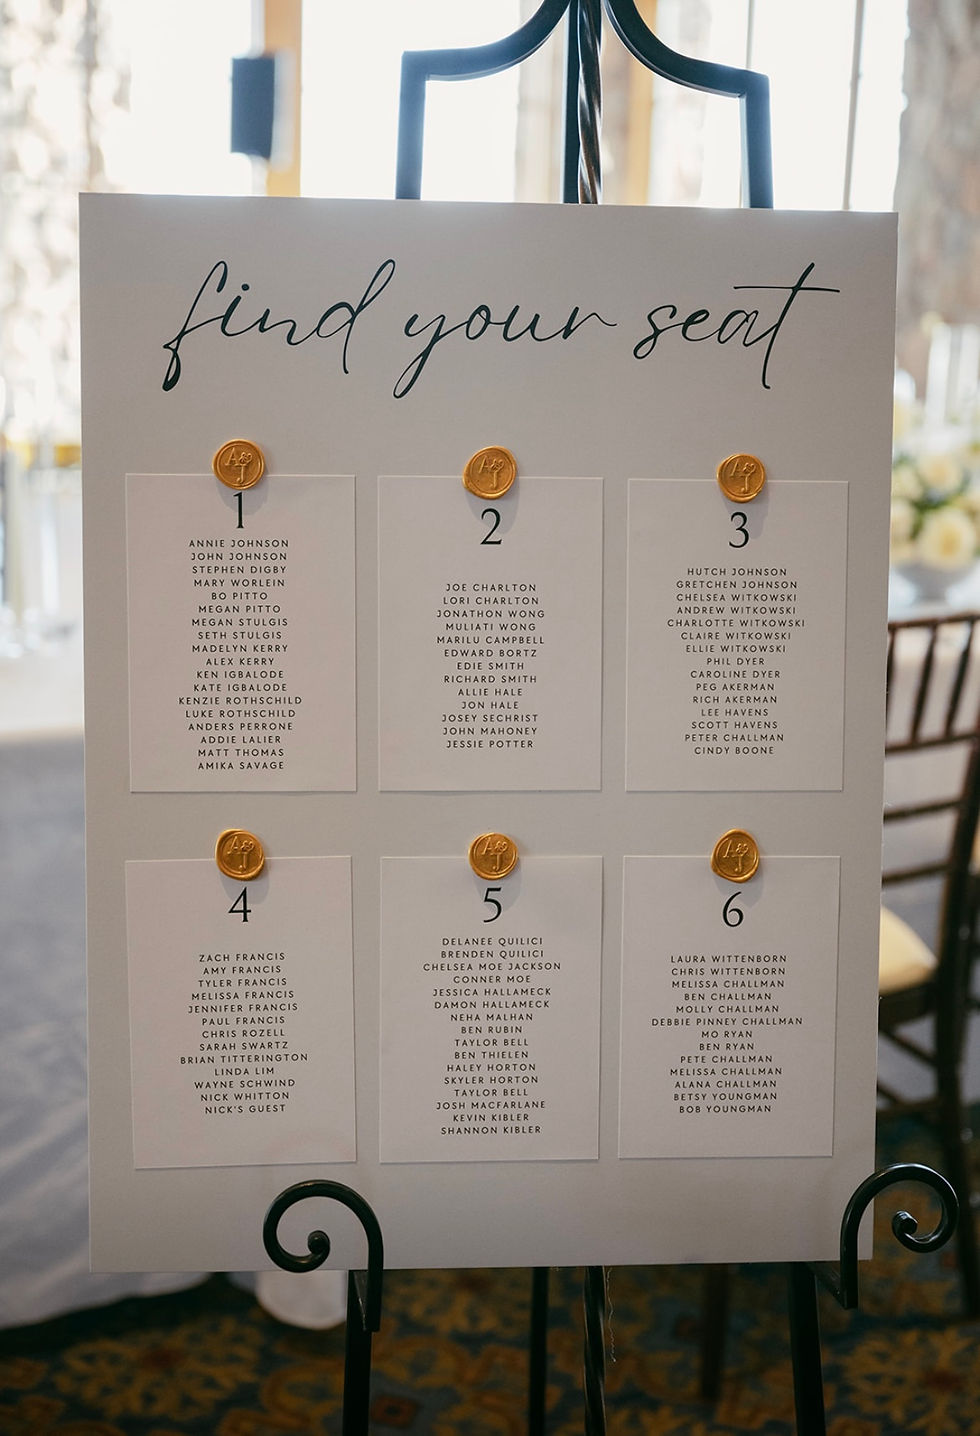 find your seat
A&J
1
ANNIE JOHNSON
JOHN JOHNSON
STEPHEN DIGBY
MARY WORLEIN
BO PITTO
MEGAN PITTO
MEGAN STULGIS
SETH STULGIS
MADELYN KERRY
ALEX KERRY
KEN IGBALODE
KATE IGBALODE
KENZIE ROTHSCHILD
LUKE ROTHSCHILD
ANDERS PERRONE
ADDIE LALIER
MATT THOMAS
AMIKA SAVAGE
A&J
2
JOE CHARLTON
LORI CHARLTON
JONATHON WONG
MULIATI WONG
MARILU CAMPBELL
EDWARD BORTZ
EDIE SMITH
RICHARD SMITH
ALLIE HALE
JON HALE
JOSEY SECHRIST
JOHN MAHONEY
JESSIE POTTER
A&J
3
HUTCH JOHNSON
GRETCHEN JOHNSON
CHELSEA WITKOWSKI
ANDREW WITKOWSKI
CHARLOTTE WITKOWSKI
CLAIRE WITKOWSKI
ELLIE WITKOWSKI
PHIL DYER
CAROLINE DYER
PEG AKERMAN
RICH AKERMAN
LEE HAVENS
SCOTT HAVENS
PETER CHALLMAN
CINDY BOONE
A&J
4
ZACH FRANCIS
AMY FRANCIS
TYLER FRANCIS
MELISSA FRANCIS
JENNIFER FRANCIS
PAUL FRANCIS
CHRIS ROZELL
SARAH SWARTZ
BRIAN TITTERINGTON
LINDA LIM
WAYNE SCHWIND
NICK WHITTON
NICK'S GUEST
A&J
5
DELANEE QUILICI
BRENDEN QUILICI
CHELSEA MOE JACKSON
CONNER MOE
JESSICA HALLAMECK
DAMON HALLAMECK
NEHA MALHAN
BEN RUBIN
TAYLOR BELL
BEN THIELEN
HALEY HORTON
SKYLER HORTON
TAYLOR BELL
JOSH MACFARLANE
KEVIN KIBLER
SHANNON KIBLER
A&J
6
LAURA WITTENBORN
CHRIS WITTENBORN
MELISSA CHALLMAN
BEN CHALLMAN
MOLLY CHALLMAN
DEBBIE PINNEY CHALLMAN
MO RYAN
BEN RYAN
PETE CHALLMAN
MELISSA CHALLMAN
ALANA CHALLMAN
BETSY YOUNGMAN
BOB YOUNGMAN